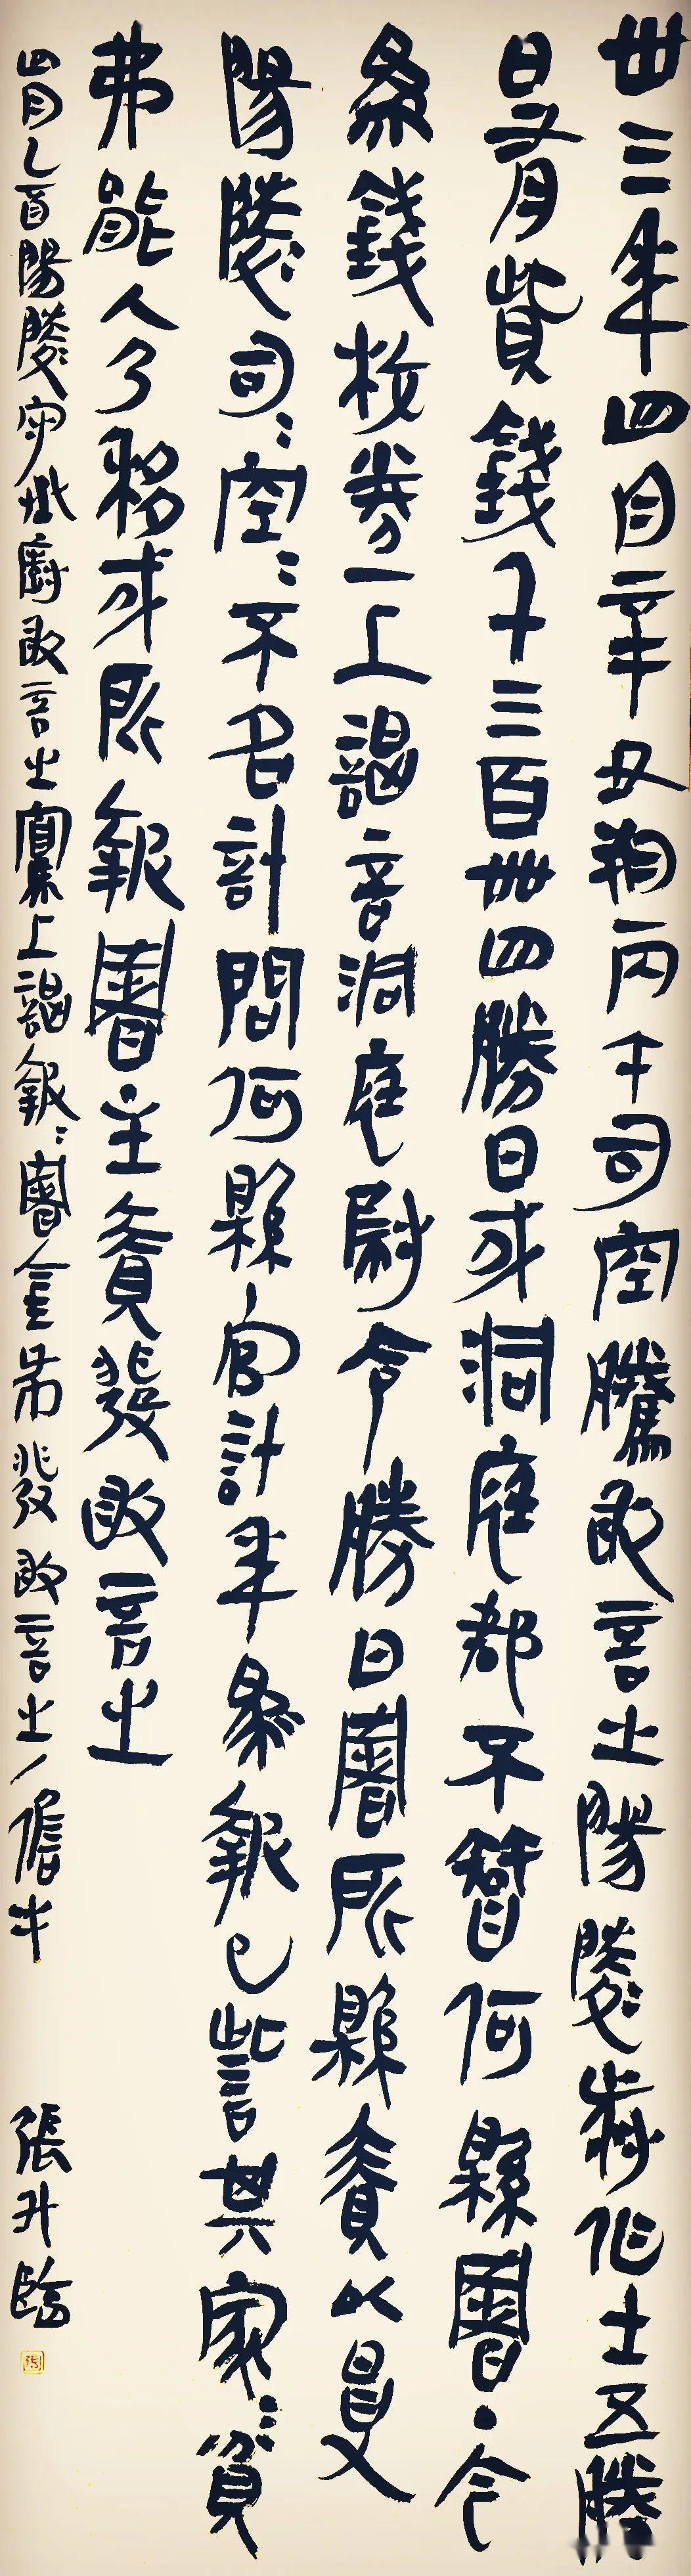 卅三年四月辛丑朔丙午司空騰敢言之陽陵叔作士五勝
日有貲錢千三百卌四勝日戍洞庭郡不智何縣署·今
為錢校券一上謁言洞庭尉令勝日署所縣責以受
陽陵司=空=不名計問何縣官計年為報已訾其家=貧
弗能入乃移戍所報署主責發敢言之
四月乙酉陽陵守丞廚敢言之寫上謁報=署金布發敢言之/儋手 張升臨